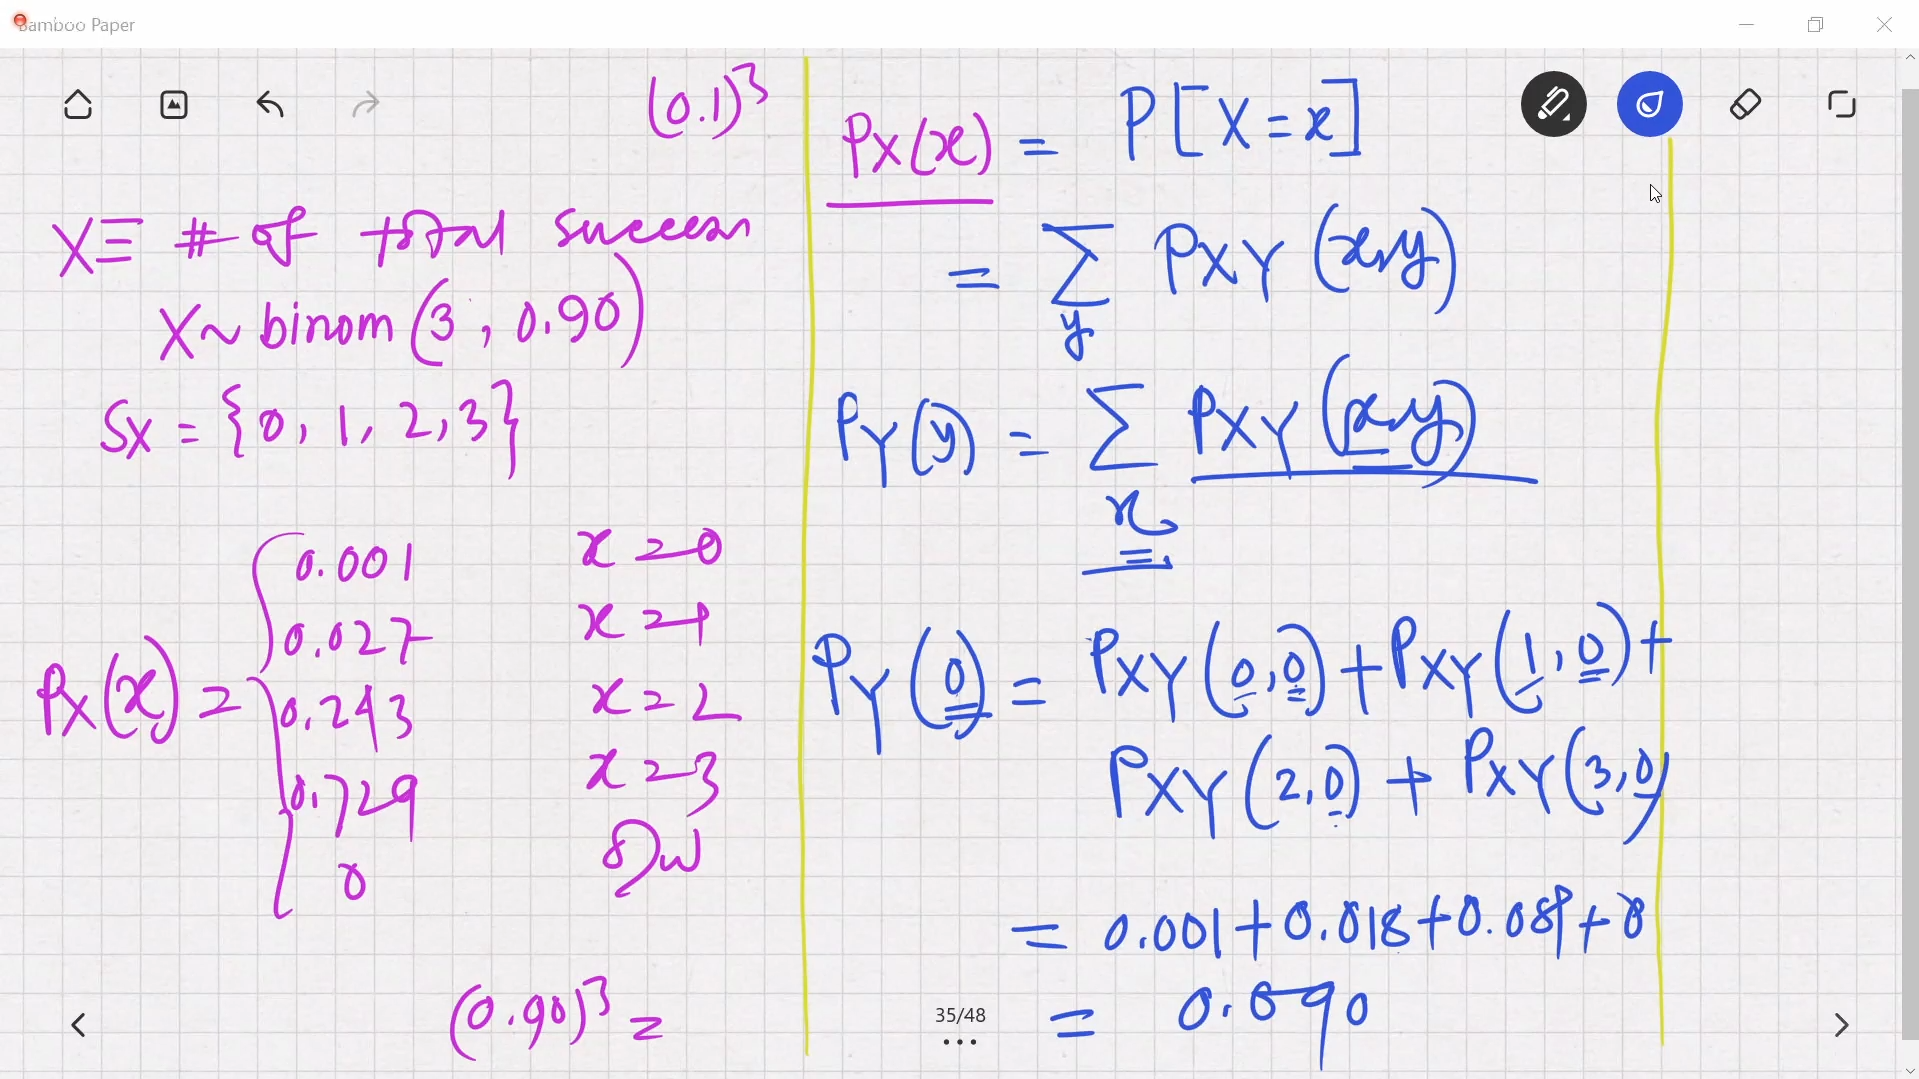 Bamboo Paper
(0.1)³
X ≡ # of total success
X ~ binom (3, 0.90)
Sx = {0, 1, 2, 3}
Px(x) =
0.001 x = 0
0.027 x = 1
0.243 x = 2
0.729 x = 3
0 ow
(0.90)³ =
Px(x) = P[X = x]
= Σy PXY (x,y)
PY(y) = Σx PXY (x,y)
PY(0) = PXY(0,0) + PXY(1,0) +
PXY(2,0) + PXY(3,0)
= 0.001 + 0.018 + 0.081 + 0
= 0.090
35/48